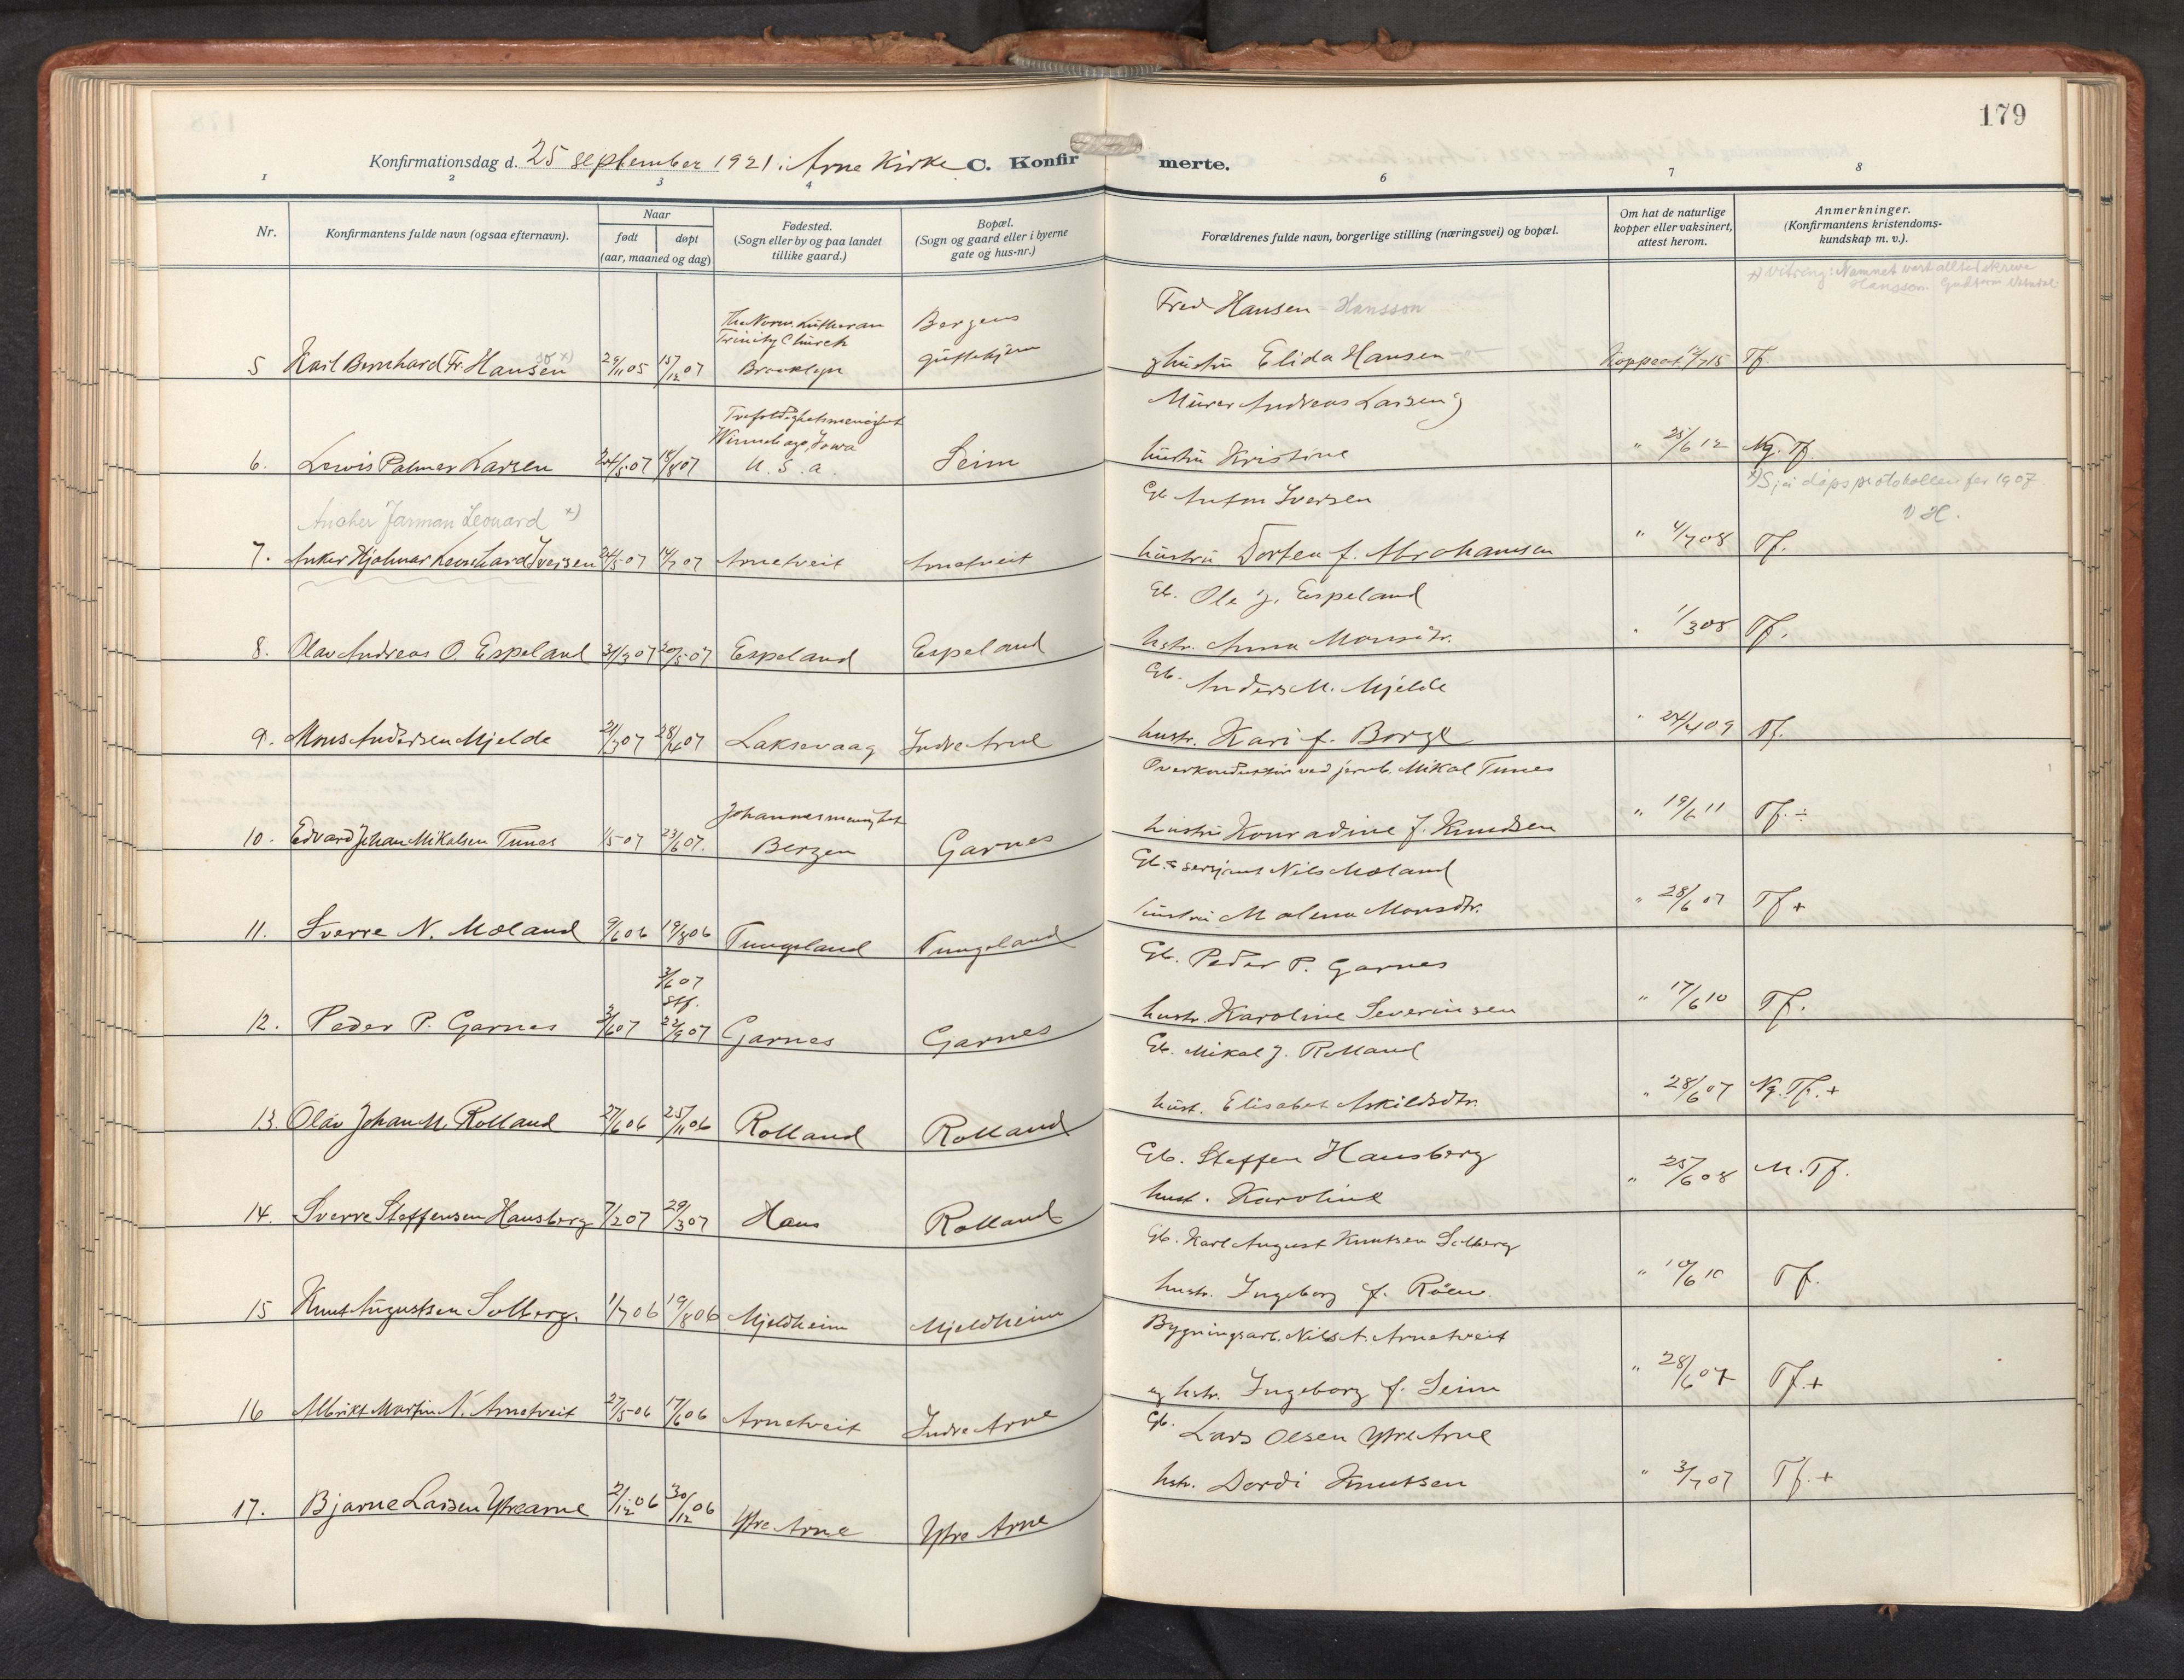 179
Konfirmationsdag d. 25 september 1921 i Arne Kirke C. Konfirmerte.
1 2 3 4 6 7 8
Nr.
Konfirmantens fulde navn (ogsaa efternavn).
Naar
født døpt
(aar, maaned og dag)
Fødested.
(Sogn eller by og paa landet
tillike gaard.)
Bopæl.
(Sogn og gaard eller i byerne
gate og hus-nr.)
Forældrenes fulde navn, borgerlige stilling (næringsvei) og bopæl.
Om hat de naturlige
kopper eller vaksinert,
attest herom.
Anmerkninger.
(Konfirmantens kristendoms-
kundskap m. v.).
x) Vitring: Namnet vert alltid skreve
Hansson.
The Norw. Lutheran Bergens Fred Hansen - Hansson
Trinity Church
5 Karl Bernhard Fr. Hansen x) 29/11 05 15/12 07 Brooklyn Elida Hansen Koppeat 15 Tf.
Trefoldighetsmenighet Murer Andreas Larsen
Winnebago, Iowa
6. Lewis Palmer Larsen 24/5 07 18/8 07 U. S. a. Seim hustru Kristine " 25/6 12 Ng. Tf
Gb Anton Iversen x) Sjå dåpsprotokollen for 1907
Ancher Jarman Leonard x) V H.
7. Anker Hjalmar Leonhard Iversen 24/5 07 14/7 07 Arnetveit Arnetveit hustru Dortea f. Abrahamsen " 4/7 08 Tf.
Gb. Ole J. Espeland
8. Olav Andreas O. Espeland 31/3 07 20/5 07 Espeland Espeland hstr. Anna Monsdtr. " 1/3 08 Tf.
Gb. Anders M. Mjelde
9. Mons Andersen Mjelde 21/3 07 28/4 07 Laksevaag Indre Arne hustr. Kari f. Borge " 24/4 09 Tf.
Johannesmenighet Overkonduktør ved jernb. Mikal Tunes
10. Edvard Johan Mikalsen Tunes 1/5 07 23/6 07. Bergen Garnes hustru Konradine f. Knudsen " 19/6 11 Tf. ÷
Gb. & serjant Nils Moland
11. Sverre N. Moland 9/6 06 19/8 06 Tungeland Tungeland hustru Malena Monsdtr. " 28/6 07 Tf +
3/6 07 Gb. Peder P. Garnes
stf.
12. Peder P. Garnes 3/6 07 22/9 07 Garnes Garnes hustr. Karoline Severinsen " 17/6 10 Tf.
Gb. Mikal J. Rolland
13. Olav Johan M. Rolland 27/6 06 25/11 06 Rolland Rolland hust. Elisabet Askildsdtr. " 28/6 07 Ng. Tf. +
Gb. Steffen Hausberg
14. Sverre Steffensen Hausberg 7/2 07 29/3 07 Haus Rolland hust. Karoline " 25/6 08 M. Tf.
Gb. Karl August Knutsen Solberg
15 Knut Augustsen Solberg. 1/7 06 19/8 06 Mjeldheim Mjeldheim hustr. Ingeborg f. Røen " 10/6 10 Tf.
Bygningsarb. Nils A. Arnetveit
16 Albrikt Martin N. Arnetveit 27/5 06 17/6 06 Arnetveit Indre Arne og hstr. Ingeborg f. Seim " 28/6 07 Tf. +
Gb. Lars Olsen Ytre Arne
17. Bjarne Larsen Ytrearne 2/12 06 30/12 06 Ytre Arne Ytre Arne hstr. Dordi Knutsen " 3/7 07 Tf. +